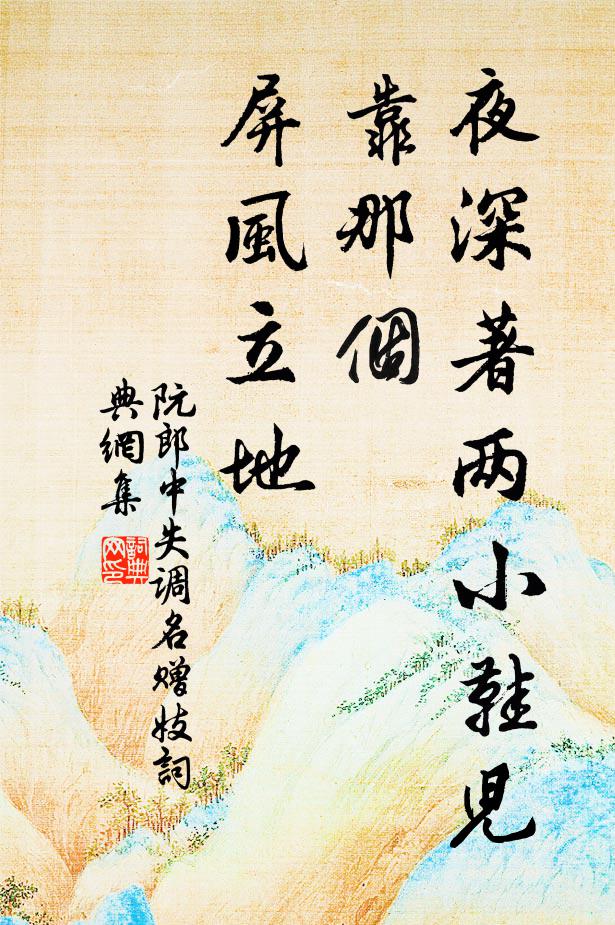 夜深著两小鞋児
靠那個
屏風立地
阮郎中失调名赠妓詞
典網集
詞典
网印